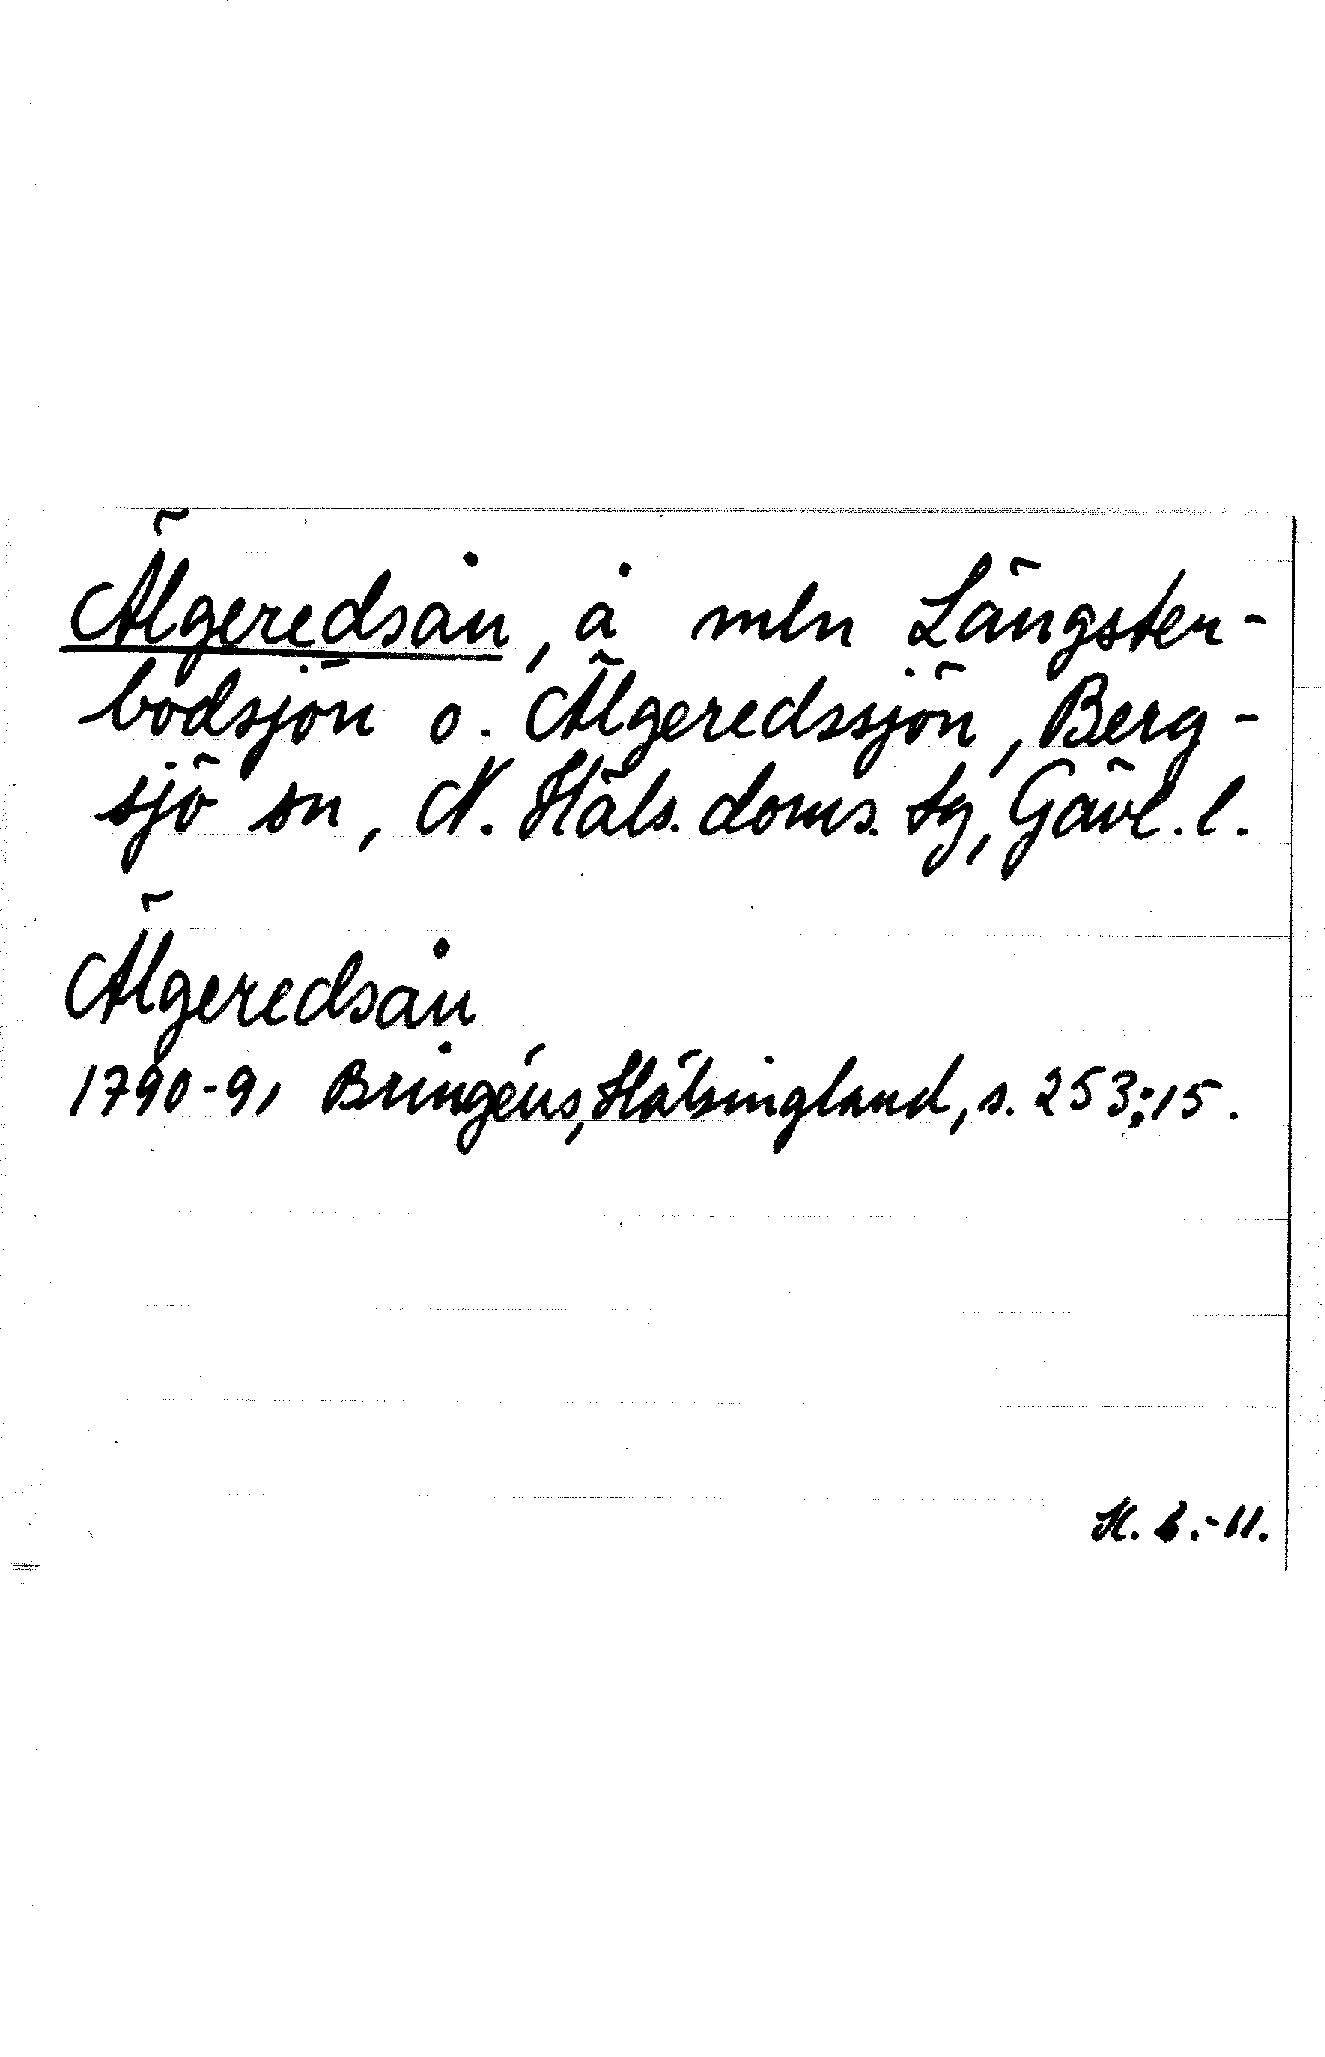 Älgeredsån, å mln Längster-
bodsjön o. Älgeredssjön, Berg-
sjö sn, N. Häls. doms. tg, Gävl. l.
Älgeredsån
1790-91 Bringéus, Hälsingland, s. 253:15.